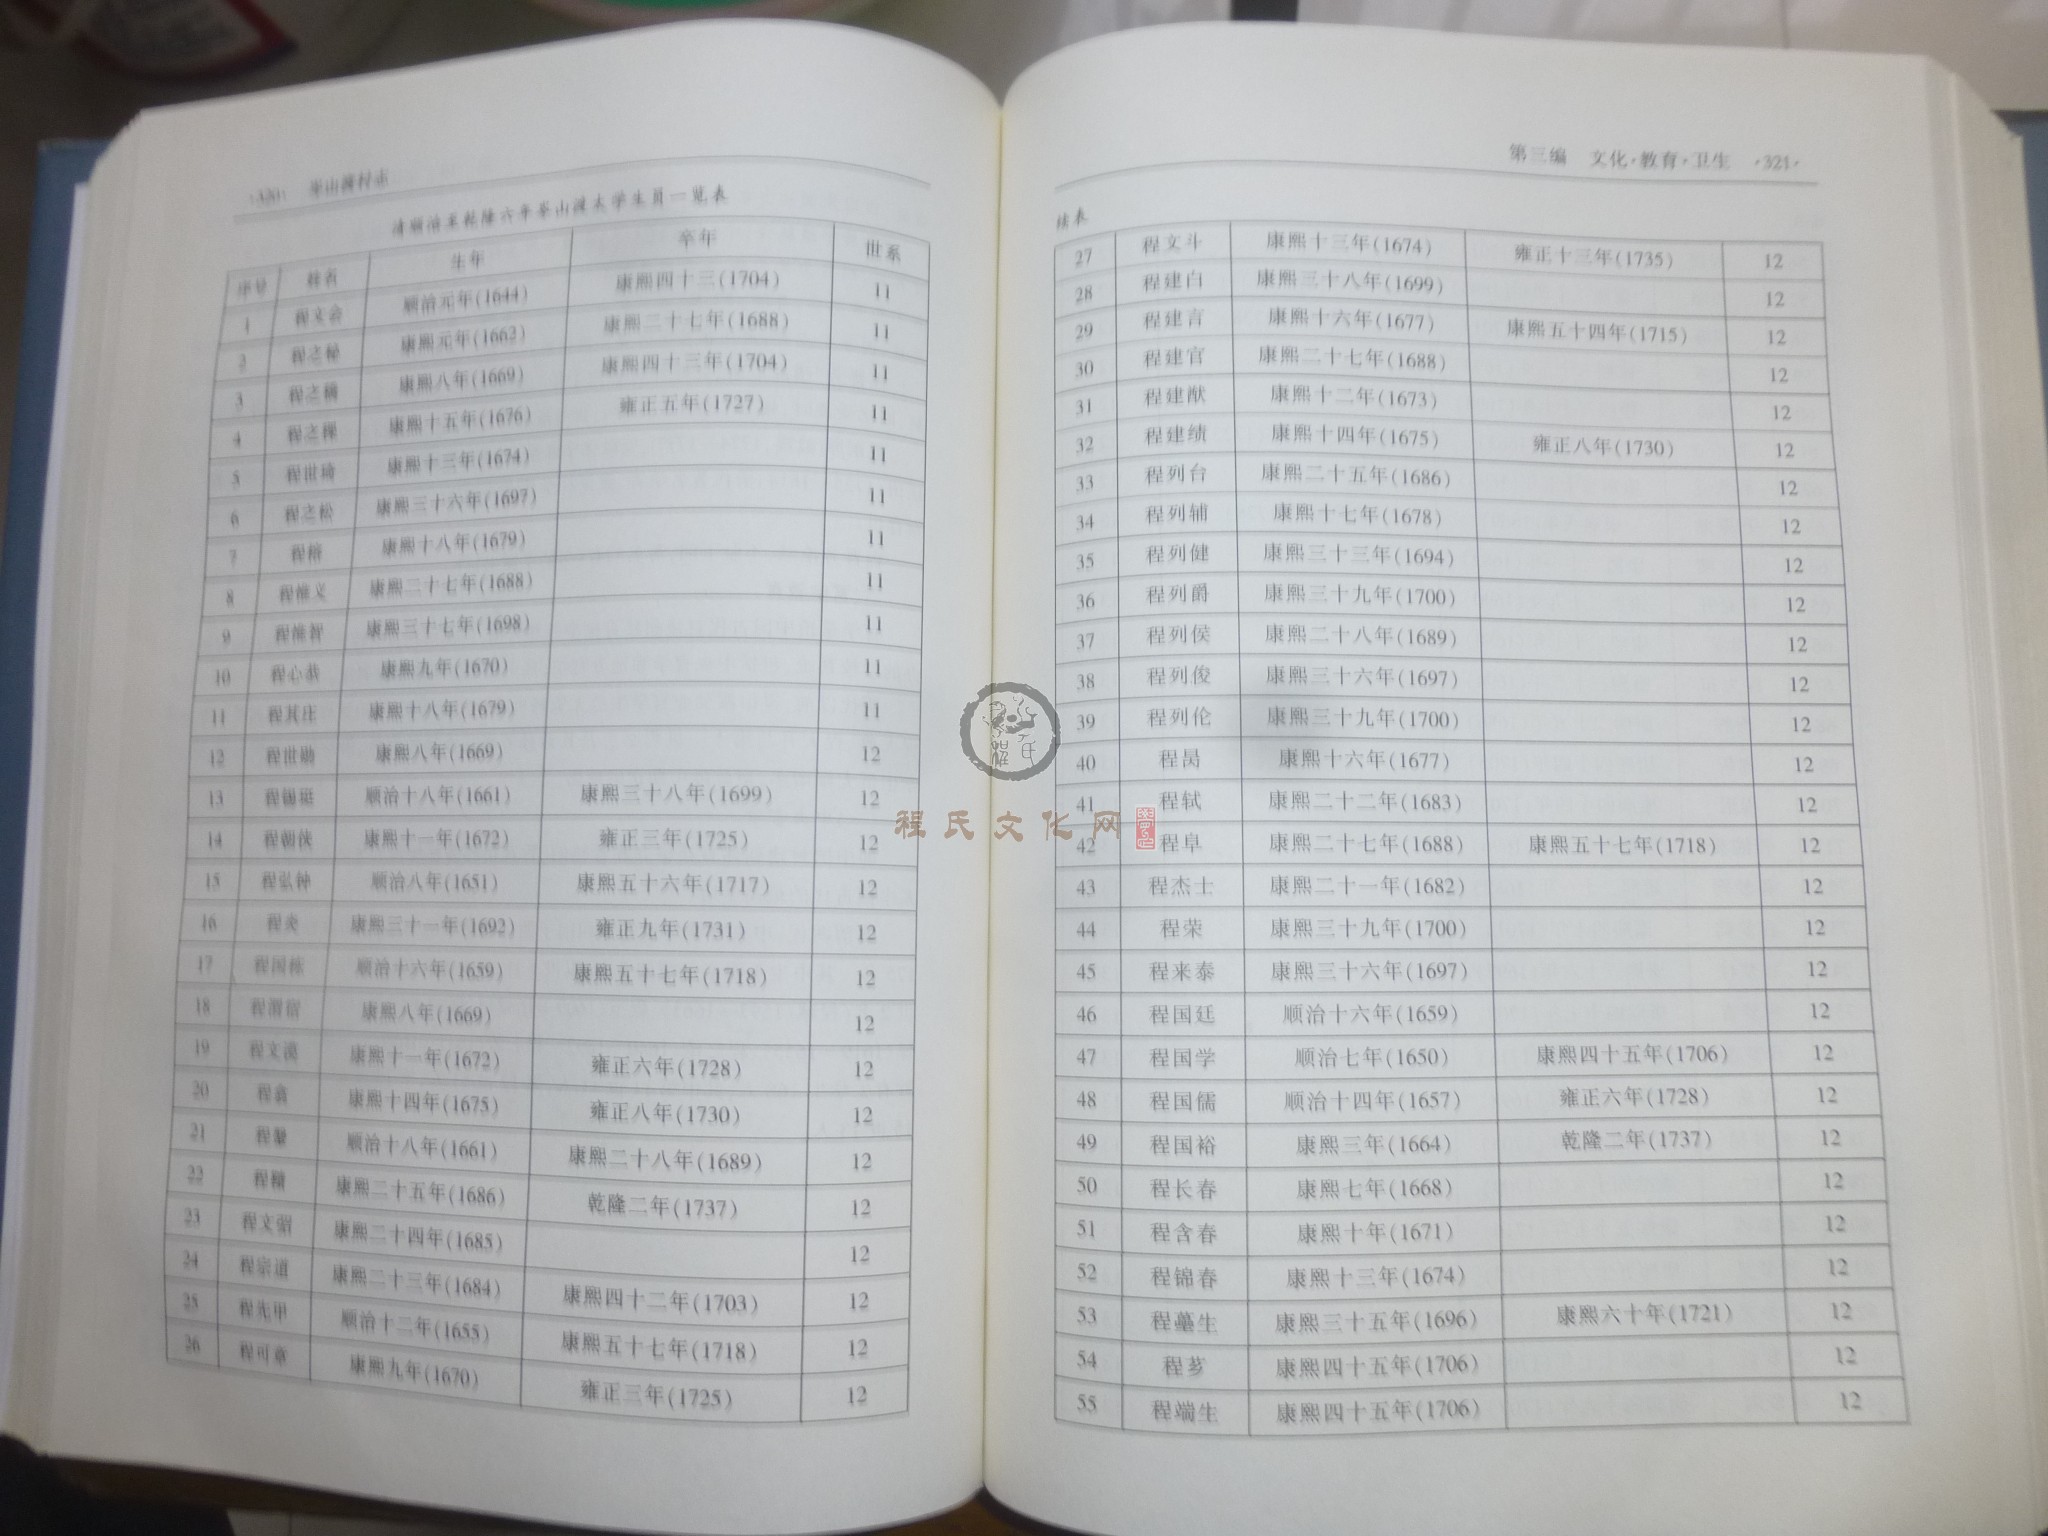 ·320· 峯山滩村志
清顺治至乾隆六年峯山滩太学生员一览表
序号 姓名 生年 卒年 世系
1 程文会 顺治元年(1644) 康熙四十三(1704) 11
2 程之 康熙元年(1662) 康熙二十七年(1688) 11
3 程之 康熙八年(1669) 康熙四十三年(1704) 11
4 程之 康熙十五年(1676) 雍正五年(1727) 11
5 程世琦 康熙十三年(1674) 11
6 程之松 康熙三十六年(1697) 11
7 程榕 康熙十八年(1679) 11
8 程惟义 康熙二十七年(1688) 11
9 程惟智 康熙三十七年(1698) 11
10 程心哉 康熙九年(1670) 11
11 程其庄 康熙十八年(1679) 11
12 程世勋 康熙八年(1669) 12
13 程锡珽 顺治十八年(1661) 康熙三十八年(1699) 12
14 程朝侠 康熙十一年(1672) 雍正三年(1725) 12
15 程弘钟 顺治八年(1651) 康熙五十六年(1717) 12
16 程炎 康熙三十一年(1692) 雍正九年(1731) 12
17 程国栋 顺治十六年(1659) 康熙五十七年(1718) 12
18 程渭宿 康熙八年(1669) 12
19 程文谟 康熙十一年(1672) 雍正六年(1728) 12
20 程 康熙十四年(1675) 雍正八年(1730) 12
21 程 顺治十八年(1661) 康熙二十八年(1689) 12
22 程 康熙二十五年(1686) 乾隆二年(1737) 12
23 程文 康熙二十四年(1685) 12
24 程宗道 康熙二十三年(1684) 康熙四十二年(1703) 12
25 程先甲 顺治十二年(1655) 康熙五十七年(1718) 12
26 程可章 康熙九年(1670) 雍正三年(1725) 12
第三编 文化·教育·卫生 ·321·
续表
27 程文斗 康熙十三年(1674) 雍正十三年(1735) 12
28 程建白 康熙三十八年(1699) 12
29 程建言 康熙十六年(1677) 康熙五十四年(1715) 12
30 程建官 康熙二十七年(1688) 12
31 程建猷 康熙十二年(1673) 12
32 程建绩 康熙十四年(1675) 雍正八年(1730) 12
33 程列台 康熙二十五年(1686) 12
34 程列辅 康熙十七年(1678) 12
35 程列健 康熙三十三年(1694) 12
36 程列爵 康熙三十九年(1700) 12
37 程列侯 康熙二十八年(1689) 12
38 程列俊 康熙三十六年(1697) 12
39 程列伦 康熙三十九年(1700) 12
40 程昺 康熙十六年(1677) 12
41 程轼 康熙二十二年(1683) 12
42 程阜 康熙二十七年(1688) 康熙五十七年(1718) 12
43 程杰士 康熙二十一年(1682) 12
44 程荣 康熙三十九年(1700) 12
45 程来泰 康熙三十六年(1697) 12
46 程国廷 顺治十六年(1659) 12
47 程国学 顺治七年(1650) 康熙四十五年(1706) 12
48 程国儒 顺治十四年(1657) 雍正六年(1728) 12
49 程国裕 康熙三年(1664) 乾隆二年(1737) 12
50 程长春 康熙七年(1668) 12
51 程含春 康熙十年(1671) 12
52 程锦春 康熙十三年(1674) 12
53 程蘲生 康熙三十五年(1696) 康熙六十年(1721) 12
54 程芗 康熙四十五年(1706) 12
55 程端生 康熙四十五年(1706) 12
程氏文化网